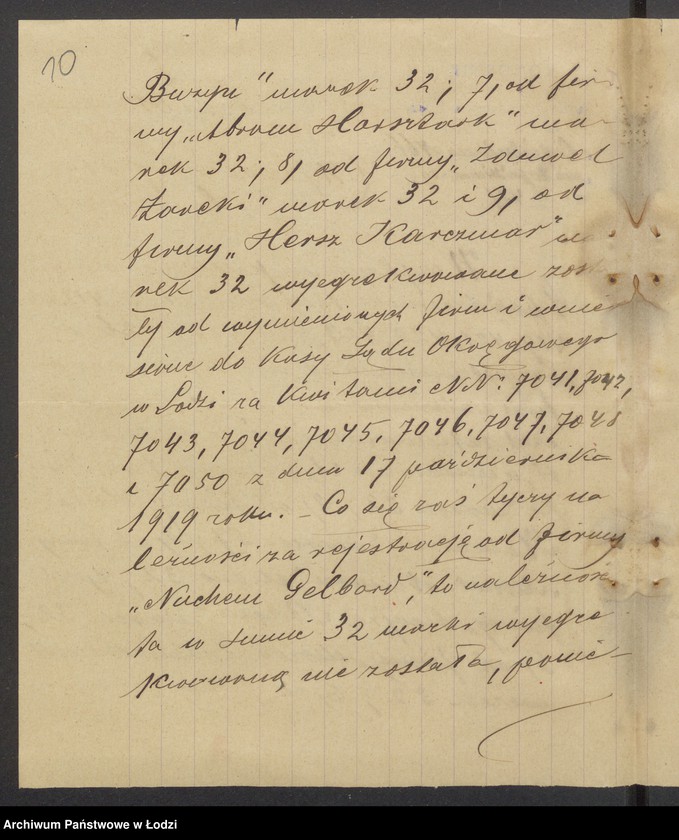 10
Buzyn" marek 32; 7, od fir-
my „Abram Harsztark" ma-
rek 32; 8, od firmy „
Żarcki" marek 32 i 9, od
firmy „Hersz Karczmar" ma
rek 32 wyegzekwowane zosta
ły od wymienionych firm i wnie
sione do Kasy Sądu Okręgowego
w Łodzi za Kwitami NN: 7041, 7042,
7043, 7044, 7045, 7046, 7047, 7048
i 7050 z dnia 17 października
1919 roku. – Co się zaś tyczy na
leżności za rejestrację od firmy
„Nuchem Gelbard," to należność
ta w sumie 32 marki wyegze
kwowaną nie została, ponie-
Archiwum Państwowe w Łodzi